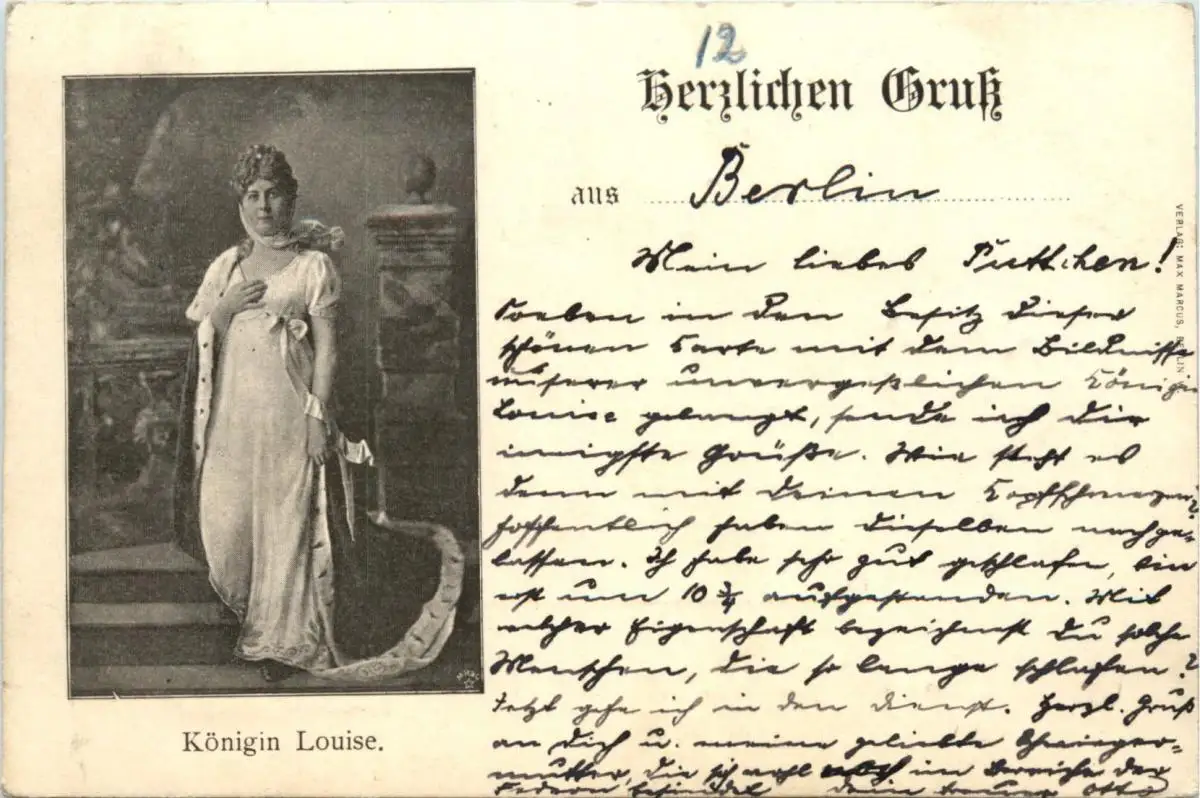 12
Herzlichen Gruß
aus Berlin
Mein liebes Puttchen!
Soeben in den Besitz dieser
schönen Karte mit dem Bildnisse
unserer unvergeßlichen Königin
Louise gelangt, sende ich Dir
innigste Grüße. Wie steht es
denn mit Deinen Kopfschmerzen?
hoffentlich haben dieselben nachge-
lassen. Ich habe sehr gut geschlafen, bin
erst um 10 3/4 aufgestanden. Mit
welcher Eigenschaft bezeichnest Du solche
Menschen, die so lange schlafen?
Jetzt gehe ich in den Dienst. Herzl. Gruß
an Dich u. meine geliebte Schwieger-
mutter, die sich wohl noch im Bereiche der
Federn befindet Dein treuer Otto
Königin Louise.
VERLAG: MAX MARCUS, BERLIN